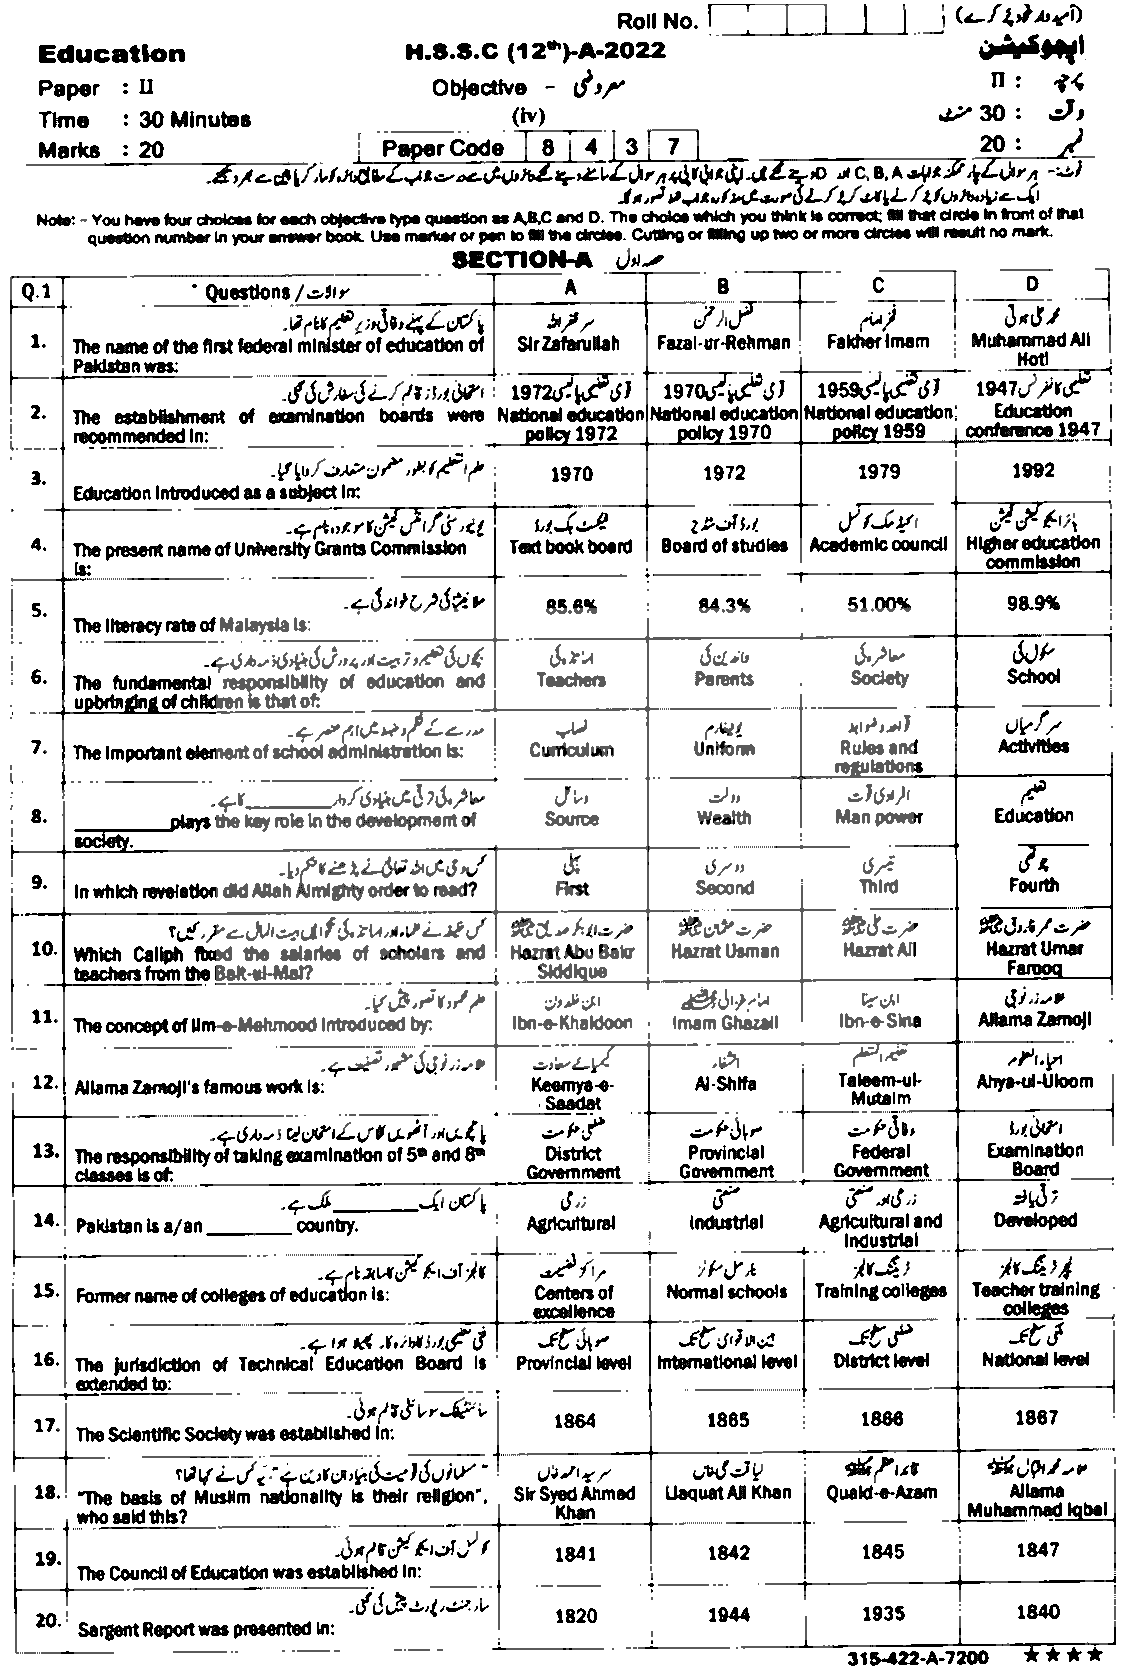 Roll No. (امیدوار خود پُر کرے)
Education H.S.S.C (12th)-A-2022 ایجوکیشن
Paper : II Objective - معروضی پرچہ : II
Time : 30 Minutes (iv) وقت : 30 منٹ
Marks : 20 Paper Code 8 4 3 7 نمبر : 20
Note: - You have four choices for each objective type question as A,B,C and D. The choice which you think is correct; fill that circle in front of that
question number in your answer book. Use marker or pen to fill the circles. Cutting or filling up two or more circles will result no mark.
SECTION-A حصہ اول
Q.1 Questions / سوالات A B C D
پاکستان کے پہلے وفاقی وزیر تعلیم کا نام تھا۔ سر ظفر اللہ فضل الرحمٰن فخر امام محمد علی ہوتی
1. The name of the first federal minister of education of Pakistan was: Sir Zafarullah Fazal-ur-Rehman Fakher Imam Muhammad Ali Hoti
امتحانی بورڈز قائم کرنے کی سفارش کی گئی۔ قومی تعلیمی پالیسی 1972 قومی تعلیمی پالیسی 1970 قومی تعلیمی پالیسی 1959 تعلیمی کانفرنس 1947
2. The establishment of examination boards were recommended in: National education policy 1972 National education policy 1970 National education policy 1959 Education conference 1947
علم التعلیم کو بطور مضمون متعارف کروایا گیا۔
3. Education introduced as a subject in: 1970 1972 1979 1992
یونیورسٹی گرانٹس کمیشن کا موجودہ نام ہے۔ ٹیکسٹ بک بورڈ بورڈ آف سٹڈیز اکیڈمک کونسل ہائر ایجوکیشن کمیشن
4. The present name of University Grants Commission is: Text book board Board of studies Academic council Higher education commission
ملائیشیا کی شرح خواندگی ہے۔
5. The literacy rate of Malaysia is: 85.6% 84.3% 51.00% 98.9%
بچوں کی تعلیم و تربیت اور پرورش کی بنیادی ذمہ داری ہے۔ اساتذہ کی والدین کی معاشرہ کی سکول کی
6. The fundamental responsibility of education and upbringing of children is that of: Teachers Parents Society School
مدرسے کے نظم و ضبط میں اہم عنصر ہے۔ نصاب یونیفارم قواعد و ضوابط سرگرمیاں
7. The important element of school administration is: Curriculum Uniform Rules and regulations Activities
معاشرہ کی ترقی میں بنیادی کردار ________ کا ہے۔ وسائل دولت افرادی قوت تعلیم
8. ________ plays the key role in the development of society. Source Wealth Man power Education
کس وحی میں اللہ تعالیٰ نے پڑھنے کا حکم دیا۔ پہلی دوسری تیسری چوتھی
9. In which revelation did Allah Almighty order to read? First Second Third Fourth
کس خلیفہ نے علماء اور اساتذہ کی تنخواہیں بیت المال سے مقرر کیں؟ حضرت ابوبکر صدیق حضرت عثمان حضرت علی حضرت عمر فاروق
10. Which Caliph fixed the salaries of scholars and teachers from the Bait-ul-Mal? Hazrat Abu Bakr Siddique Hazrat Usman Hazrat Ali Hazrat Umar Farooq
علم محمود کا تصور پیش کیا۔ ابن خلدون امام غزالی ابن سینا علامہ زرنوجی
11. The concept of Ilm-e-Mehmood introduced by: Ibn-e-Khaldoon Imam Ghazali Ibn-e-Sina Allama Zarnoji
علامہ زرنوجی کی مشہور تصنیف ہے۔ کیمیائے سعادت الشفاء تعلیم المتعلم احیاء العلوم
12. Allama Zarnoji's famous work is: Keemya-e-Saadat Al-Shifa Taleem-ul-Mutalm Ahya-ul-Uloom
پانچویں اور آٹھویں کلاس کے امتحان لینا ذمہ داری ہے۔ ضلعی حکومت صوبائی حکومت وفاقی حکومت امتحانی بورڈ
13. The responsibility of taking examination of 5th and 8th classes is of: District Government Provincial Government Federal Government Examination Board
پاکستان ایک ________ ملک ہے۔ زرعی صنعتی زرعی اور صنعتی ترقی یافتہ
14. Pakistan is a/an ________ country. Agricultural Industrial Agricultural and Industrial Developed
کالجز آف ایجوکیشن کا سابقہ نام ہے۔ مراکز فضیلت نارمل سکولز ٹریننگ کالجز ٹیچر ٹریننگ کالجز
15. Former name of colleges of education is: Centers of excellence Normal schools Training colleges Teacher training colleges
فنی تعلیمی بورڈ کا دائرہ کار پھیلا ہوا ہے۔ صوبائی سطح تک بین الاقوامی سطح تک ضلعی سطح تک ملکی سطح تک
16. The jurisdiction of Technical Education Board is extended to: Provincial level International level District level National level
سائنٹیفک سوسائٹی قائم ہوئی۔
17. The Scientific Society was established in: 1864 1865 1866 1867
"مسلمانوں کی قومیت کی بنیاد ان کا دین ہے" یہ کس نے کہا تھا؟ سر سید احمد خاں لیاقت علی خاں قائد اعظم علامہ محمد اقبال
18. "The basis of Muslim nationality is their religion", who said this? Sir Syed Ahmed Khan Liaquat Ali Khan Quaid-e-Azam Allama Muhammad Iqbal
کونسل آف ایجوکیشن قائم ہوئی۔
19. The Council of Education was established in: 1841 1842 1845 1847
سارجنٹ رپورٹ پیش کی گئی۔
20. Sargent Report was presented in: 1820 1944 1935 1840
315-422-A-7200 ★★★★